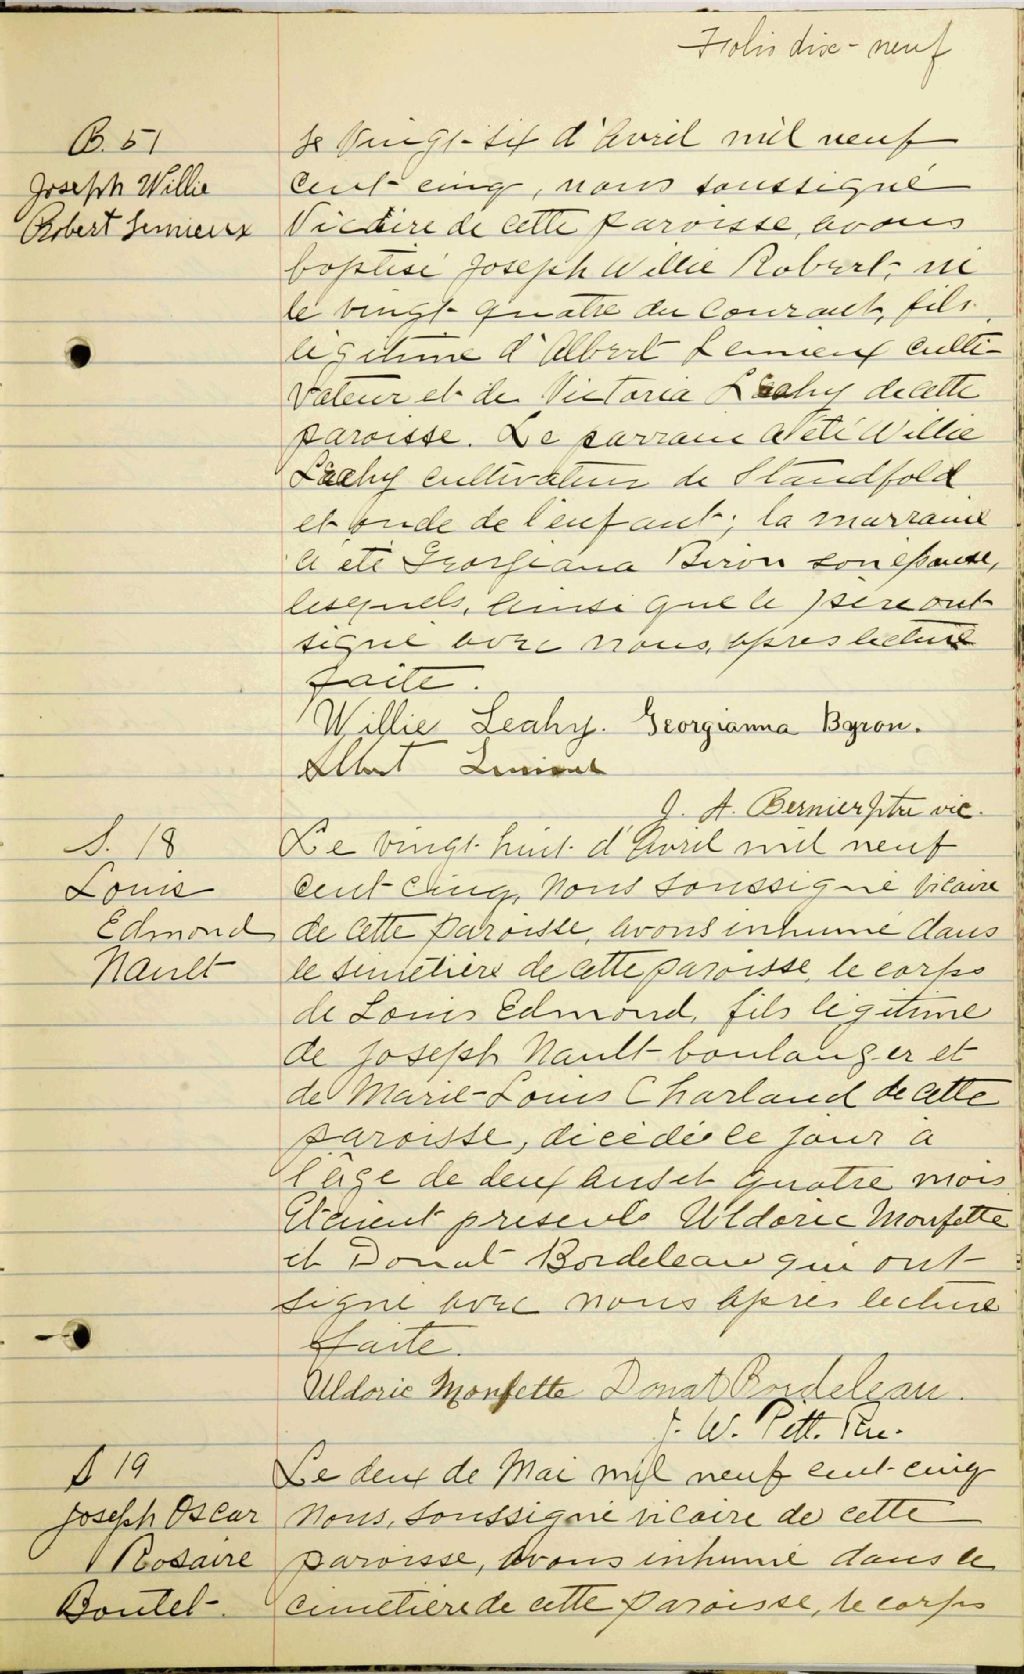 Folio dix-neuf
B. 51
Joseph Willie
Robert Lemieux
Le vingt-six d'Avril mil neuf
cent-cinq, nous soussigné
Vicaire de cette paroisse, avons
baptisé Joseph Willie Robert, né
le vingt-quatre du courant, fils
légitime d'Albert Lemieux culti-
vateur et de Victoria Leahy de cette
paroisse. Le parrain a été Willie
Leahy cultivateur de Standfold
et oncle de l'enfant; la marraine
a été Georgiana Biron son épouse,
lesquels, ainsi que le père ont
signé avec nous, après lecture
faite.
Willie Leahy. Georgianna Byron.
Albert Lemieux
J. A. Bernier ptre vic.
S. 18
Louis
Edmond
Nault
Le vingt-huit d'Avril mil neuf
cent-cinq, nous soussigné vicaire
de cette paroisse, avons inhumé dans
le simetière de cette paroisse, le corps
de Louis Edmond, fils légitime
de Joseph Nault boulanger et
de Marie-Louis Charland de cette
paroisse, décédé le jour à
l'âge de deux ans et quatre mois.
Etaient presents Uldoric Monfette
et Donat Bordeleau qui ont
signé avec nous après lecture
faite.
Uldoric Monfette Donat Bordeleau.
J. W.
S 19
Joseph Oscar
Rosaire
Boutet-
Le deux de Mai mil neuf cent-cinq
nous, soussigné vicaire de cette
paroisse, avons inhumé dans le
cimetière de cette paroisse, le corps